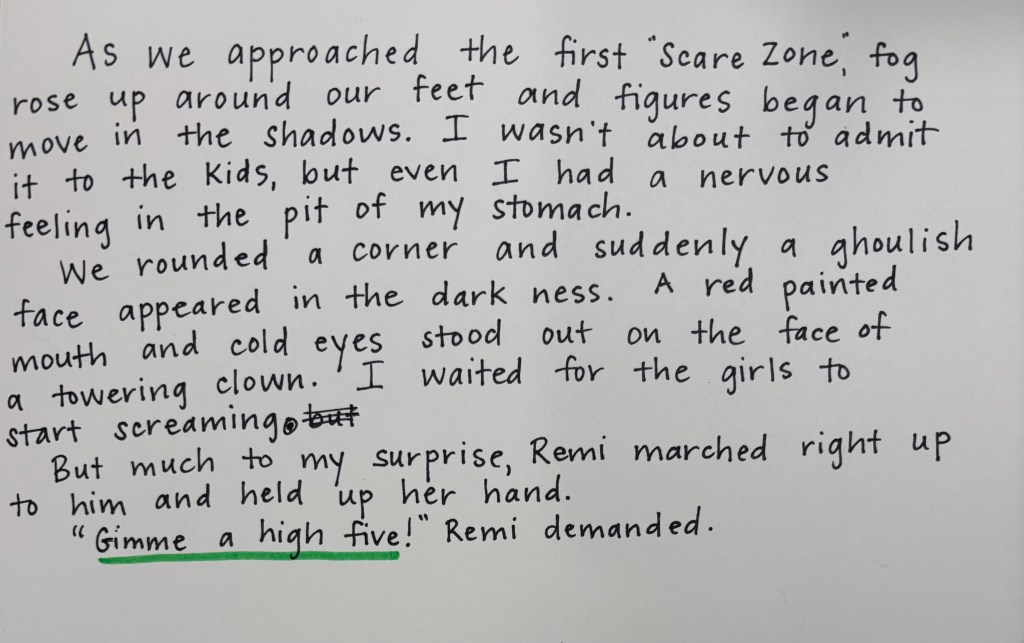 As we approached the first "Scare Zone," fog
rose up around our feet and figures began to
move in the shadows. I wasn't about to admit
it to the kids, but even I had a nervous
feeling in the pit of my stomach.
We rounded a corner and suddenly a ghoulish
face appeared in the dark ness. A red painted
mouth and cold eyes stood out on the face of
a towering clown. I waited for the girls to
start screaming. but
But much to my surprise, Remi marched right up
to him and held up her hand.
"Gimme a high five!" Remi demanded.